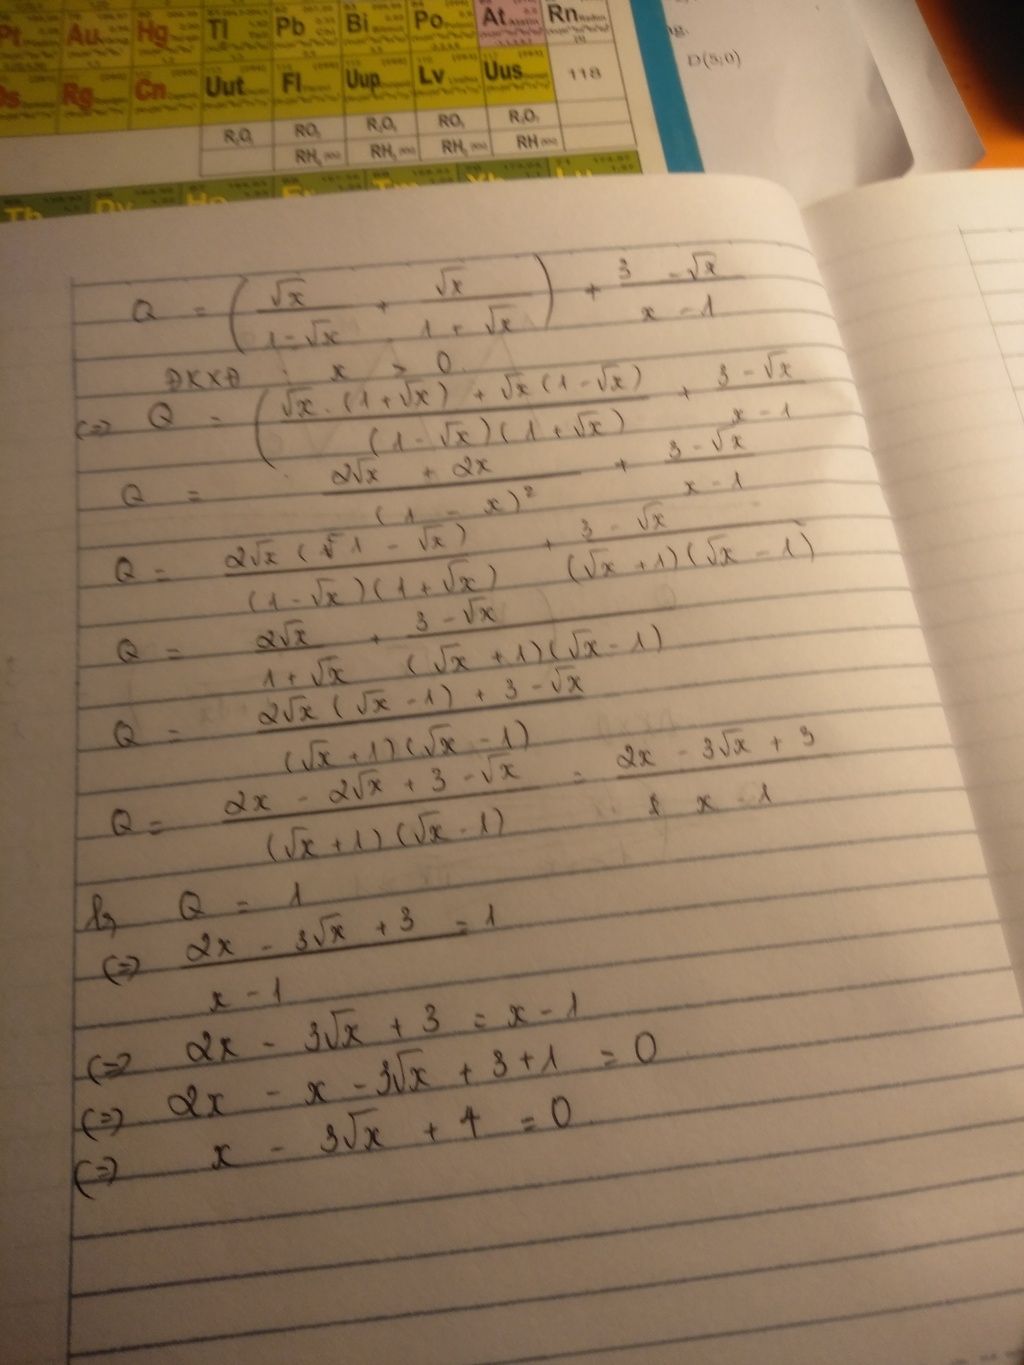 Pt Au Hg Tl Pb Bi Po At Rn
Ds Rg Cn Uut Fl Uup Lv Uus 118
R₂O₃ RO₂ R₂O₅ RO₃ R₂O₇
RH₄ RH₃ RH₂ RH
Tb Dy Ho Er Tm Yb Lu
D(5;0)
Q = (√x/(1-√x) + √x/(1+√x)) + (3-√x)/(x-1)
ĐKXĐ : x > 0.
(=) Q = ((√x.(1+√x) + √x(1-√x))/((1-√x)(1+√x)) + (3-√x)/(x-1)
Q = (2√x + 2x)/(1-x)² + (3-√x)/(x-1)
Q = 2√x(1-√x)/((1-√x)(1+√x)) + (3-√x)/((√x+1)(√x-1))
Q = 2√x/(1+√x) + (3-√x)/((√x+1)(√x-1))
Q = (2√x(√x-1) + 3-√x)/((√x+1)(√x-1))
Q = (2x - 2√x + 3 - √x)/((√x+1)(√x-1)) = (2x - 3√x + 3)/(x-1)
b, Q = 1
(=) (2x - 3√x + 3)/(x-1) = 1
(=) 2x - 3√x + 3 = x - 1
(=) 2x - x - 3√x + 3 + 1 = 0
(=) x - 3√x + 4 = 0